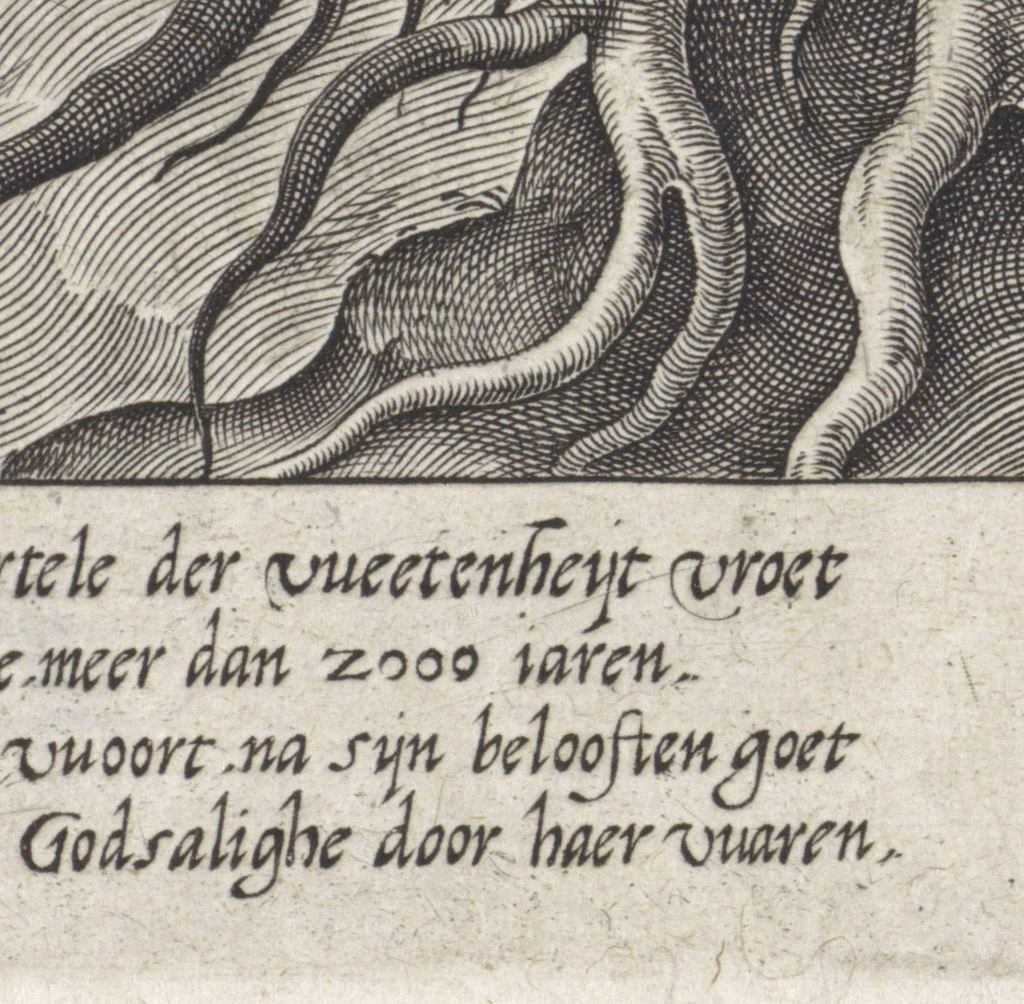 rtele der vueetenheijt vroet
e meer dan 2000 iaren.
vuoort na sijn belooften goet
Godsalighe door haer vuaren,